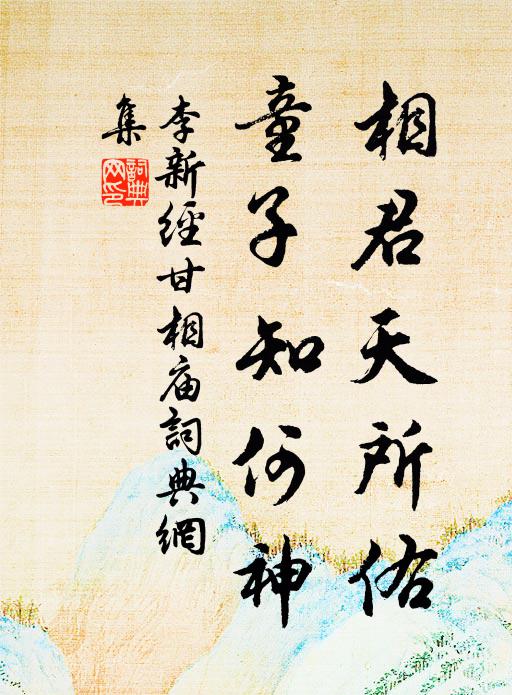 相君天所佑
童子知何神
李新經甘相庙詞典網
集
詞典網印